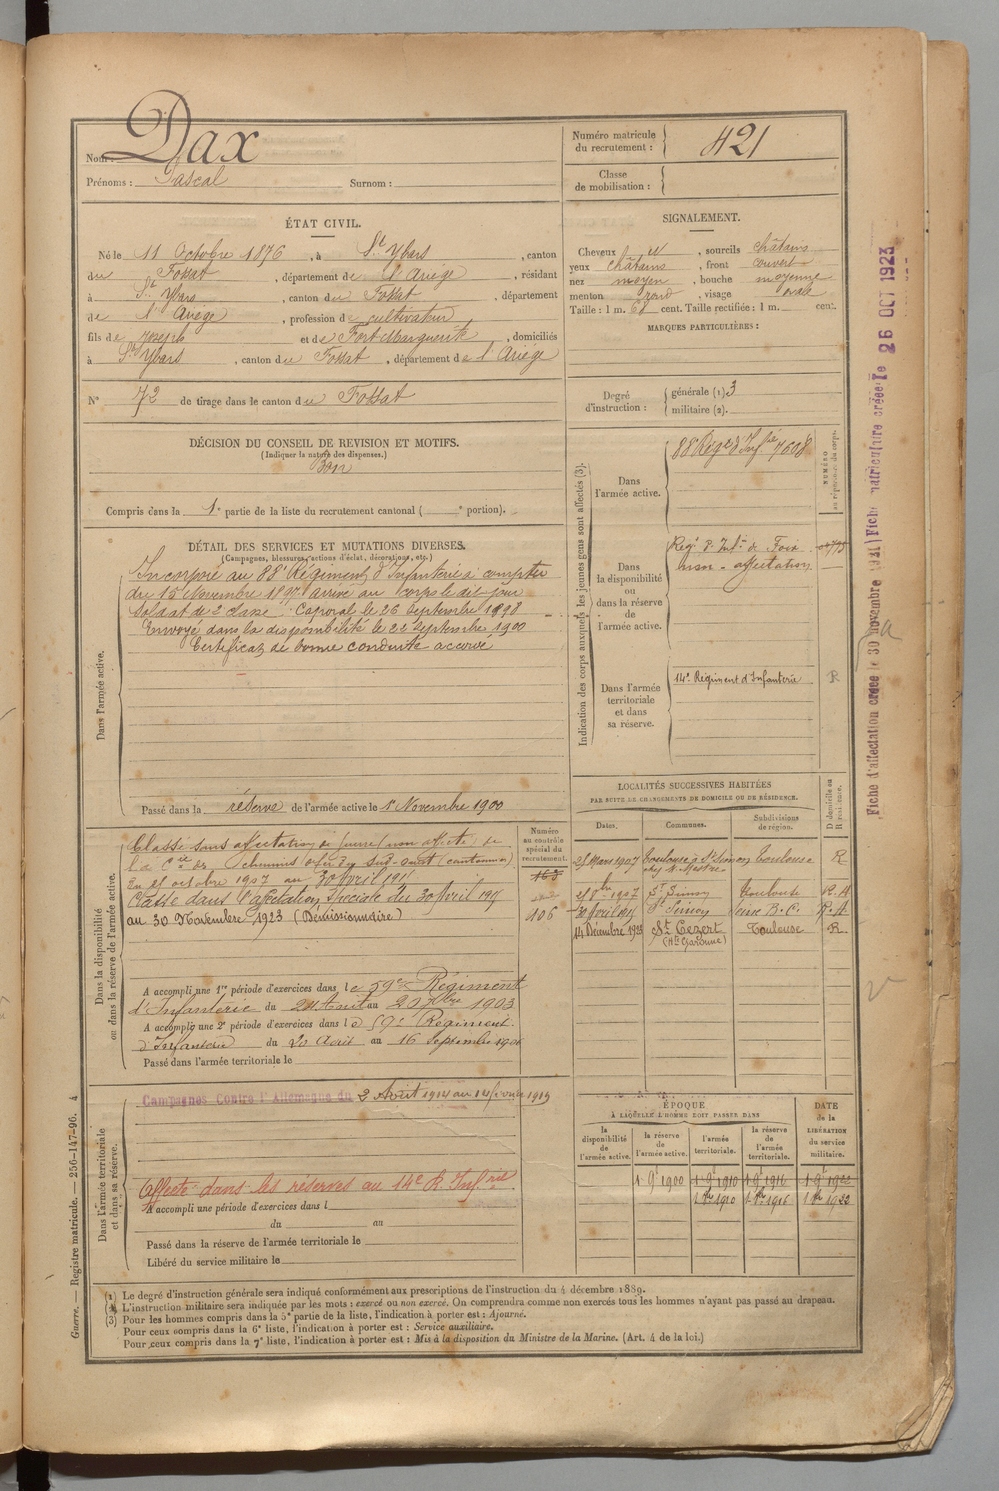 Nom : Dax
Prénoms : Pascal Surnom :
Numéro matricule du recrutement : 421
Classe de mobilisation :
ÉTAT CIVIL.
Né le 11 Octobre 1876, à St Ybars, canton
du Fossat, département de l'Ariège, résidant
à St Ybars, canton du Fossat, département
de l'Ariège, profession de cultivateur
fils de Joseph et de Fort Marguerite, domiciliés
à St Ybars, canton du Fossat, département de l'Ariège
N° 72 de tirage dans le canton du Fossat
SIGNALEMENT.
Cheveux et, sourcils châtains
yeux châtains, front couvert
nez moyen, bouche moyenne
menton rond, visage ovale
Taille : 1 m. 68 cent. Taille rectifiée : 1 m. cent.
MARQUES PARTICULIÈRES :
Degré d'instruction : générale (1). 3
militaire (2).
DÉCISION DU CONSEIL DE REVISION ET MOTIFS.
(Indiquer la nature des dispenses.)
Bon
Compris dans la 1e partie de la liste du recrutement cantonal ( e portion).
DÉTAIL DES SERVICES ET MUTATIONS DIVERSES.
(Campagnes, blessures, actions d'éclat, décorations, etc.)
Dans l'armée active.
Incorporé au 88e Régiment d'Infanterie à compter
du 15 Novembre 1897 arrivé au corps le dit jour
Soldat de 2e classe. Caporal le 26 Septembre 1898
Envoyé dans la disponibilité le 22 Septembre 1900
Certificat de bonne conduite accordé
Passé dans la réserve de l'armée active le 1er Novembre 1900
Indication des corps auxquels les jeunes gens sont affectés (3).
NUMÉRO au répertoire du corps.
Dans l'armée active.
88e Régt d'Infie 7608
Dans la disponibilité ou dans la réserve de l'armée active.
Régt d'Infie de Foix
non-affectation
Dans l'armée territoriale et dans sa réserve.
14e Régiment d'Infanterie R
LOCALITÉS SUCCESSIVES HABITÉES
PAR SUITE DE CHANGEMENTS DE DOMICILE OU DE RÉSIDENCE.
Dates. Communes. Subdivisions de région. D domicile ou R résidence.
25 Mars 1907 Toulouse à St Simon Toulouse R
chez Mr
1907 St Simon Toulouse R.A
30 Avril St Simon R.A
14 Décembre 1923 St Cezert Toulouse R.
(Hte Garonne)
Dans la disponibilité ou dans la réserve de l'armée active.
Numéro au contrôle spécial du recrutement.
163
106
Classé sans affectation de (nouvel non affecté) de
la Cie des chemins de fer du Sud-Ouest (cantonnier)
Du 25 octobre 1907 au 30 Avril 1911
Classé dans l'affectation Spéciale du 30 Avril
au 30 Novembre 1923 (Démissionnaire)
A accompli une 1re période d'exercices dans le 59e Régiment
d'Infanterie du 24 Août au 20 7bre 1903
A accompli une 2e période d'exercices dans le 59e Régiment
d'Infanterie du 20 Août au 16 Septembre
Passé dans l'armée territoriale le
Dans l'armée territoriale et dans sa réserve.
Campagnes Contre l'Allemagne du 2 Août 1914 au 14 février 1919
Affecté dans les réserves au 14e R. Infrie
A accompli une période d'exercices dans l
du au
Passé dans la réserve de l'armée territoriale le
Libéré du service militaire le
ÉPOQUE
À LAQUELLE L'HOMME DOIT PASSER DANS
DATE de la LIBÉRATION du service militaire.
la disponibilité de l'armée active. la réserve de l'armée active. l'armée territoriale. la réserve de l'armée territoriale.
1 9t 1900 1 9t 1910 1 9t 1916 1 9t 1922
1 8bre 1910 1 8bre 1916 1 8bre 1922
(1) Le degré d'instruction générale sera indiqué conformément aux prescriptions de l'instruction du 4 décembre 1889.
(2) L'instruction militaire sera indiquée par les mots : exercé ou non exercé. On comprendra comme non exercés tous les hommes n'ayant pas passé au drapeau.
(3) Pour les hommes compris dans la 5e partie de la liste, l'indication à porter est : Ajourné.
Pour ceux compris dans la 6e liste, l'indication à porter est : Service auxiliaire.
Pour ceux compris dans la 7e liste, l'indication à porter est : Mis à la disposition du Ministre de la Marine. (Art. 4 de la loi.)
Guerre. — Registre matricule. — 256-147-96. 4
Fiche d'affectation créée le 30 novembre 1921 / Fiche matriculaire créée le 26 OCT 1923